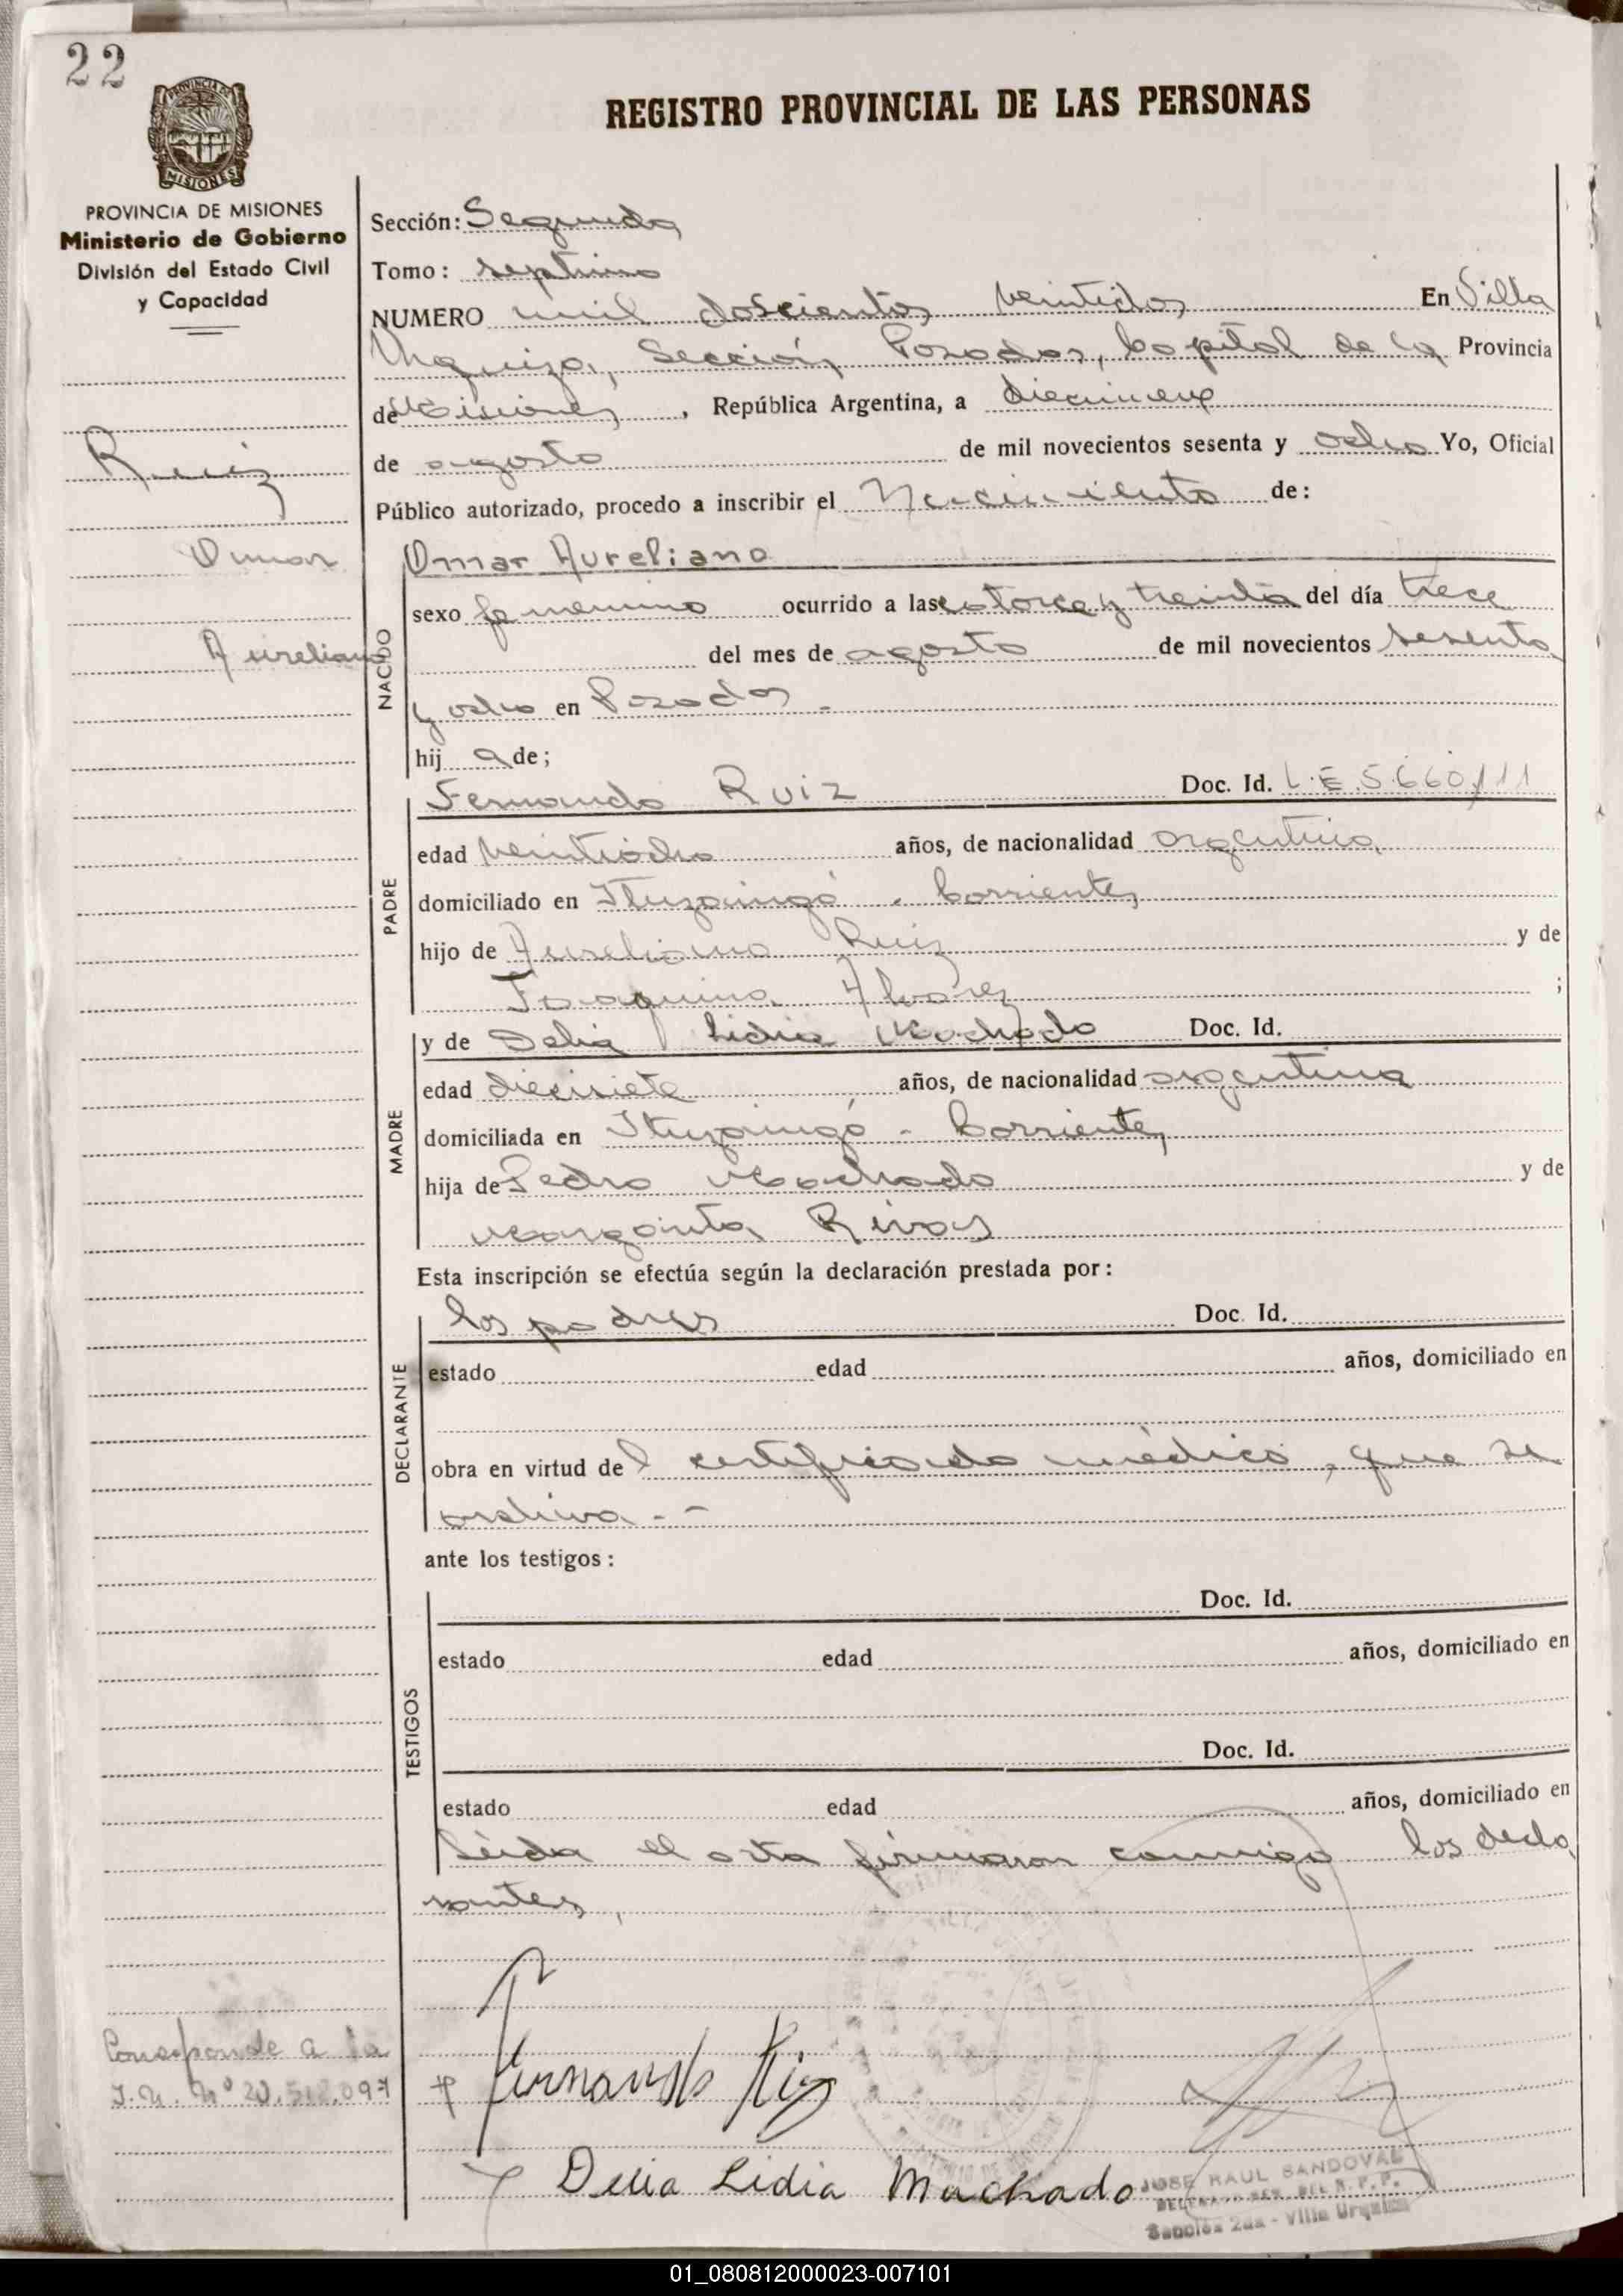 22
PROVINCIA DE
MISIONES
REGISTRO PROVINCIAL DE LAS PERSONAS
PROVINCIA DE MISIONES
Ministerio de Gobierno
División del Estado Civil
y Capacidad
Ruiz
Omar
Aureliano
Sección: Segunda
Tomo: septimo
NUMERO mil doscientos veintidos En Villa
Urquiza, Sección Posadas, Capital de la Provincia
de Misiones, República Argentina, a diecinueve
de agosto de mil novecientos sesenta y ocho Yo, Oficial
Público autorizado, procedo a inscribir el Nacimiento de:
NACIDO
Omar Aureliano
sexo femenino ocurrido a las catorce y treinta del día trece
del mes de agosto de mil novecientos sesenta
y ocho en Posadas.
hij a de;
PADRE
Fernando Ruiz Doc. Id. L.E. 5.660.111
edad veintiocho años, de nacionalidad argentina
domiciliado en Ituzaingó - Corrientes
hijo de Aureliano Ruiz y de
Joaquina Alvarez ;
MADRE
y de Delia Lidia Machado Doc. Id.
edad diecisiete años, de nacionalidad argentina
domiciliada en Ituzaingó - Corrientes
hija de Pedro Machado y de
Margarita Rivas
Esta inscripción se efectúa según la declaración prestada por:
DECLARANTE
los padres Doc. Id.
estado edad años, domiciliado en
obra en virtud del certificado médico, que se
archiva.--
ante los testigos:
TESTIGOS
Doc. Id.
estado edad años, domiciliado en
Doc. Id.
estado edad años, domiciliado en
Leida el acta firmaron conmigo los decla
rantes,
Corresponde a la
I.N. Nº 20.512.097
Fernando Ruiz
Delia Lidia Machado
JOSE RAUL SANDOVAL
Sección 2da - Villa Urquiza
01_080812000023-007101